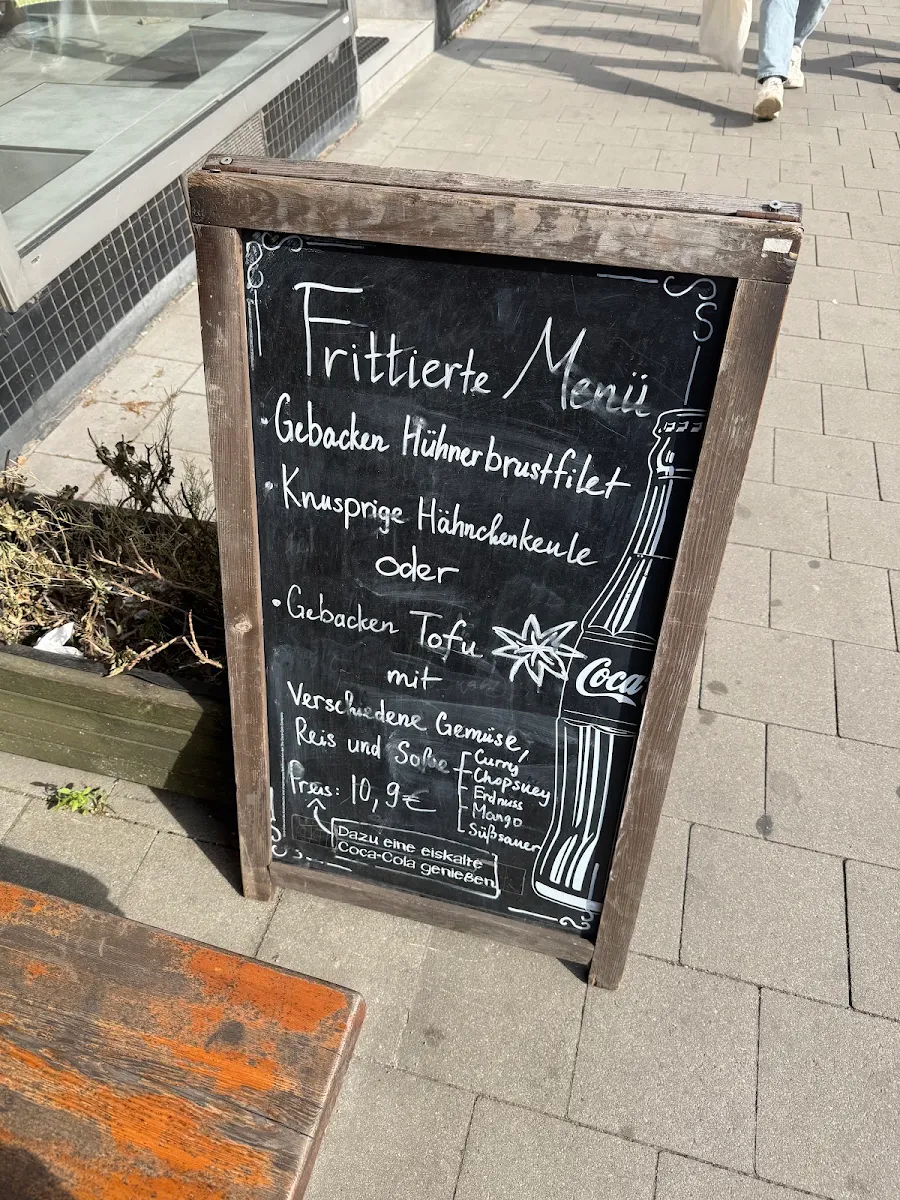 Frittierte Menü
• Gebacken Hühnerbrustfilet
• Knusprige Hähnchenkeule
oder
• Gebacken Tofu
mit
Verschiedene Gemüse,
Reis und Soße
Curry
Chopsuey
Erdnuss
Mango
Süßsauer
Preis: 10,9€
Dazu eine eiskalte
Coca-Cola genießen
Coca